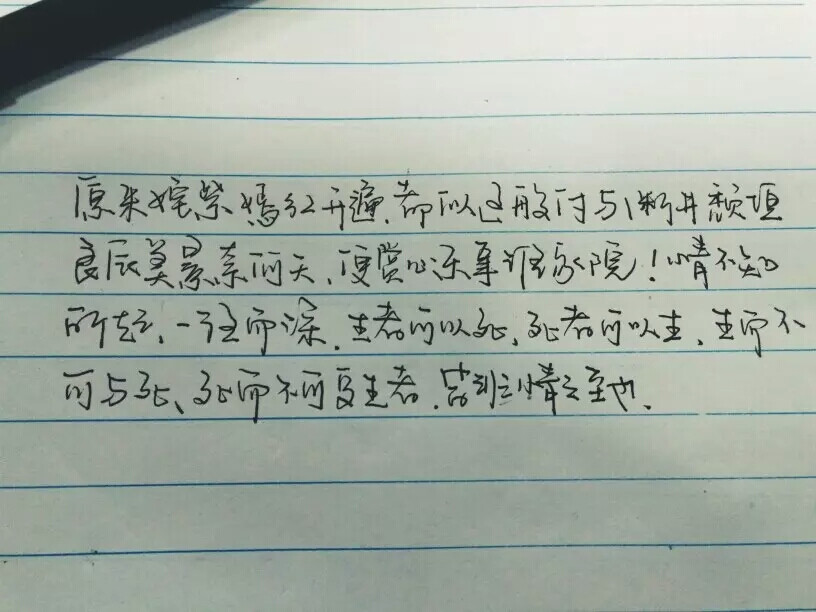 原来姹紫嫣红开遍.都似这般付与断井颓垣
良辰美景奈何天、便赏心乐事谁家院！情不知
所起、一往而深.生者可以死、死者可以生.生而不
可与死、死而不可复生者.皆非情之至也.